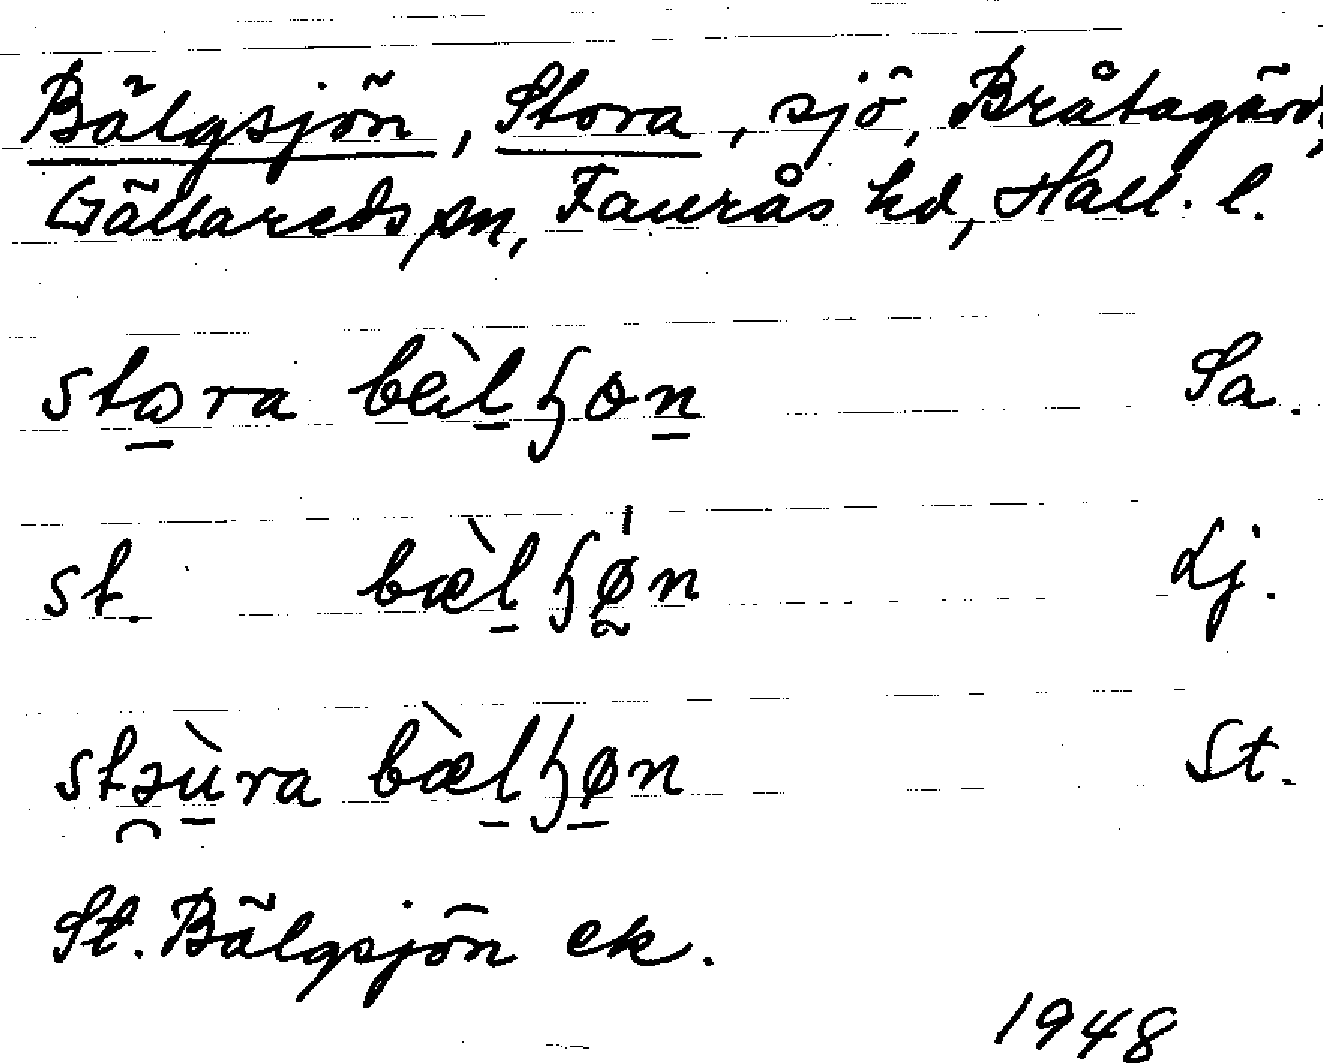 Bälgsjön, Stora, sjö, Bråtagärd,
Gällareds sn, Faurås hd, Hall. l.
stɷra bæ̀lɧon Sa.
st. bæ̀lɧøn Lj.
stəùra bæ̀lɧøn St.
St. Bälgsjön ek.
1948